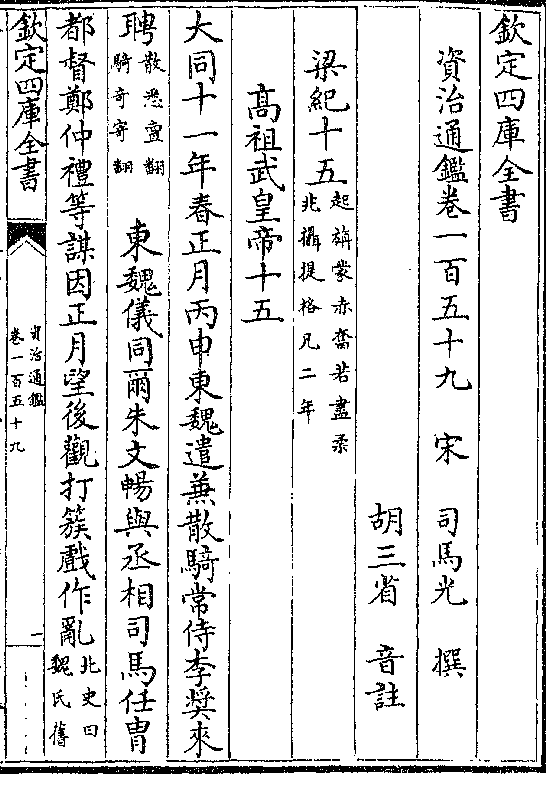 欽定四庫全書
資治通鑑卷一百五十九　宋　司馬光　撰
胡三省　音註
梁紀十五起旃蒙赤奮若盡柔兆攝提格凡二年
髙祖武皇帝十五
大同十一年春正月丙申東魏遣兼散騎常侍李奬來
聘散悉亶翻騎奇寄翻　東魏儀同爾朱文暢與丞相司馬任胄
都督鄭仲禮等謀因正月望後觀打簇戲作亂北史曰魏氏舊
欽定四庫全書
資治通鑑
卷一百五十九
一